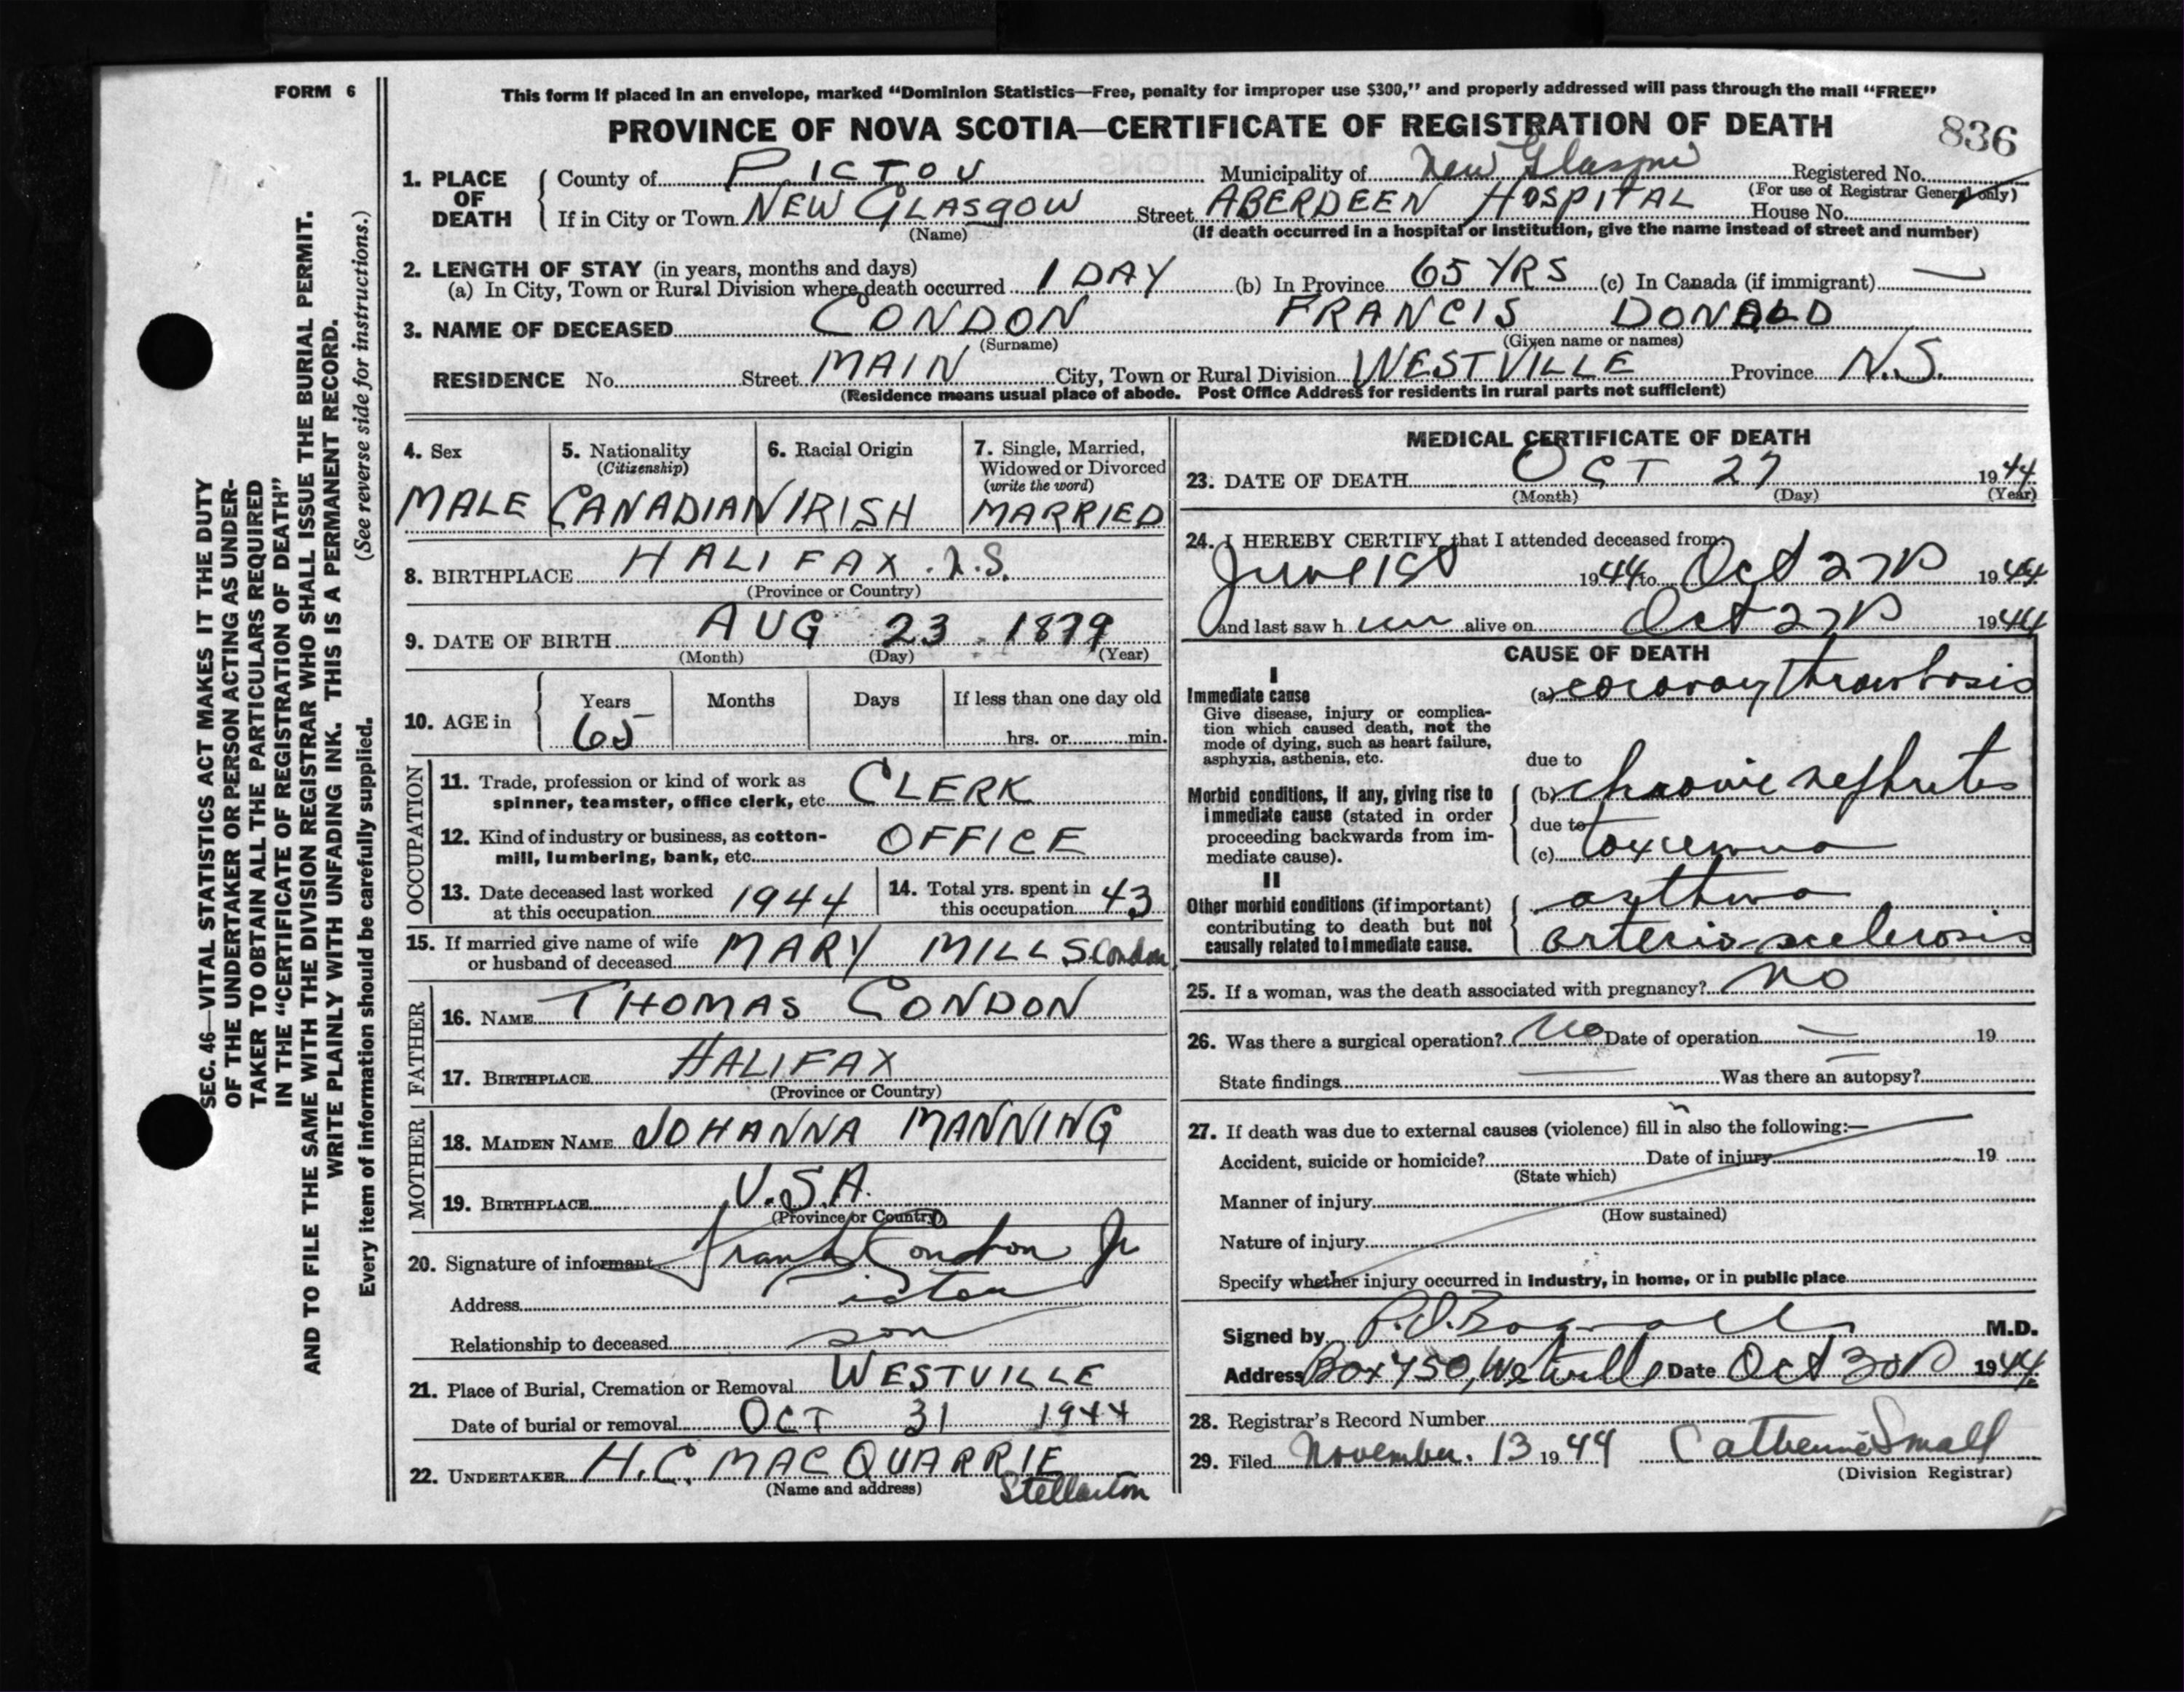 FORM 6
SEC. 46—VITAL STATISTICS ACT MAKES IT THE DUTY
OF THE UNDERTAKER OR PERSON ACTING AS UNDER-
TAKER TO OBTAIN ALL THE PARTICULARS REQUIRED
IN THE "CERTIFICATE OF REGISTRATION OF DEATH"
AND TO FILE THE SAME WITH THE DIVISION REGISTRAR WHO SHALL ISSUE THE BURIAL PERMIT.
WRITE PLAINLY WITH UNFADING INK. THIS IS A PERMANENT RECORD.
Every item of information should be carefully supplied. (See reverse side for instructions.)
This form if placed in an envelope, marked "Dominion Statistics—Free, penalty for improper use $300," and properly addressed will pass through the mail "FREE"
PROVINCE OF NOVA SCOTIA—CERTIFICATE OF REGISTRATION OF DEATH
836
1. PLACE OF DEATH
County of PICTOU Municipality of New Glasgow Registered No.
(For use of Registrar General only)
If in City or Town NEW GLASGOW Street ABERDEEN HOSPITAL House No.
(Name) (If death occurred in a hospital or institution, give the name instead of street and number)
2. LENGTH OF STAY (in years, months and days)
(a) In City, Town or Rural Division where death occurred 1 DAY (b) In Province 65 YRS (c) In Canada (if immigrant) —
3. NAME OF DECEASED CONDON FRANCIS DONALD
(Surname) (Given name or names)
RESIDENCE No. Street MAIN City, Town or Rural Division WESTVILLE Province N.S.
(Residence means usual place of abode. Post Office Address for residents in rural parts not sufficient)
4. Sex
MALE
5. Nationality
(Citizenship)
CANADIAN
6. Racial Origin
IRISH
7. Single, Married,
Widowed or Divorced
(write the word)
MARRIED
8. BIRTHPLACE HALIFAX. N.S.
(Province or Country)
9. DATE OF BIRTH AUG 23 1879
(Month) (Day) (Year)
10. AGE in
Years Months Days If less than one day old
65 hrs. or min.
OCCUPATION
11. Trade, profession or kind of work as
spinner, teamster, office clerk, etc. CLERK
12. Kind of industry or business, as cotton-
mill, lumbering, bank, etc. OFFICE
13. Date deceased last worked
at this occupation 1944
14. Total yrs. spent in
this occupation 43
15. If married give name of wife
or husband of deceased MARY MILLS Condon
FATHER
16. NAME THOMAS CONDON
17. BIRTHPLACE HALIFAX
(Province or Country)
MOTHER
18. MAIDEN NAME JOHANNA MANNING
19. BIRTHPLACE U.S.A.
(Province or Country)
20. Signature of informant Frank Condon Jr
Address Pictou
Relationship to deceased son
21. Place of Burial, Cremation or Removal WESTVILLE
Date of burial or removal OCT 31 1944
22. UNDERTAKER H.C. MACQUARRIE
(Name and address) Stellarton
MEDICAL CERTIFICATE OF DEATH
23. DATE OF DEATH OCT 27 1944
(Month) (Day) (Year)
24. I HEREBY CERTIFY that I attended deceased from:
June 1st 1944 to Oct 27th 1944
and last saw h im alive on Oct 27th 1944
CAUSE OF DEATH
I
Immediate cause
Give disease, injury or complica-
tion which caused death, not the
mode of dying, such as heart failure,
asphyxia, asthenia, etc.
(a) coronary thrombosis
due to
Morbid conditions, if any, giving rise to
immediate cause (stated in order
proceeding backwards from im-
mediate cause).
(b) chronic nephrites
due to
(c) toxemia
II
Other morbid conditions (if important)
contributing to death but not
causally related to immediate cause.
asthma
arterio-sclerosis
25. If a woman, was the death associated with pregnancy? no
26. Was there a surgical operation? No Date of operation — 19
State findings — Was there an autopsy? —
27. If death was due to external causes (violence) fill in also the following:—
Accident, suicide or homicide? Date of injury 19
(State which)
Manner of injury
(How sustained)
Nature of injury
Specify whether injury occurred in industry, in home, or in public place
Signed by Bagnall M.D.
Address Box 750, Westville Date Oct 30th 1944
28. Registrar's Record Number
29. Filed November. 13 1944 Catherine Small
(Division Registrar)